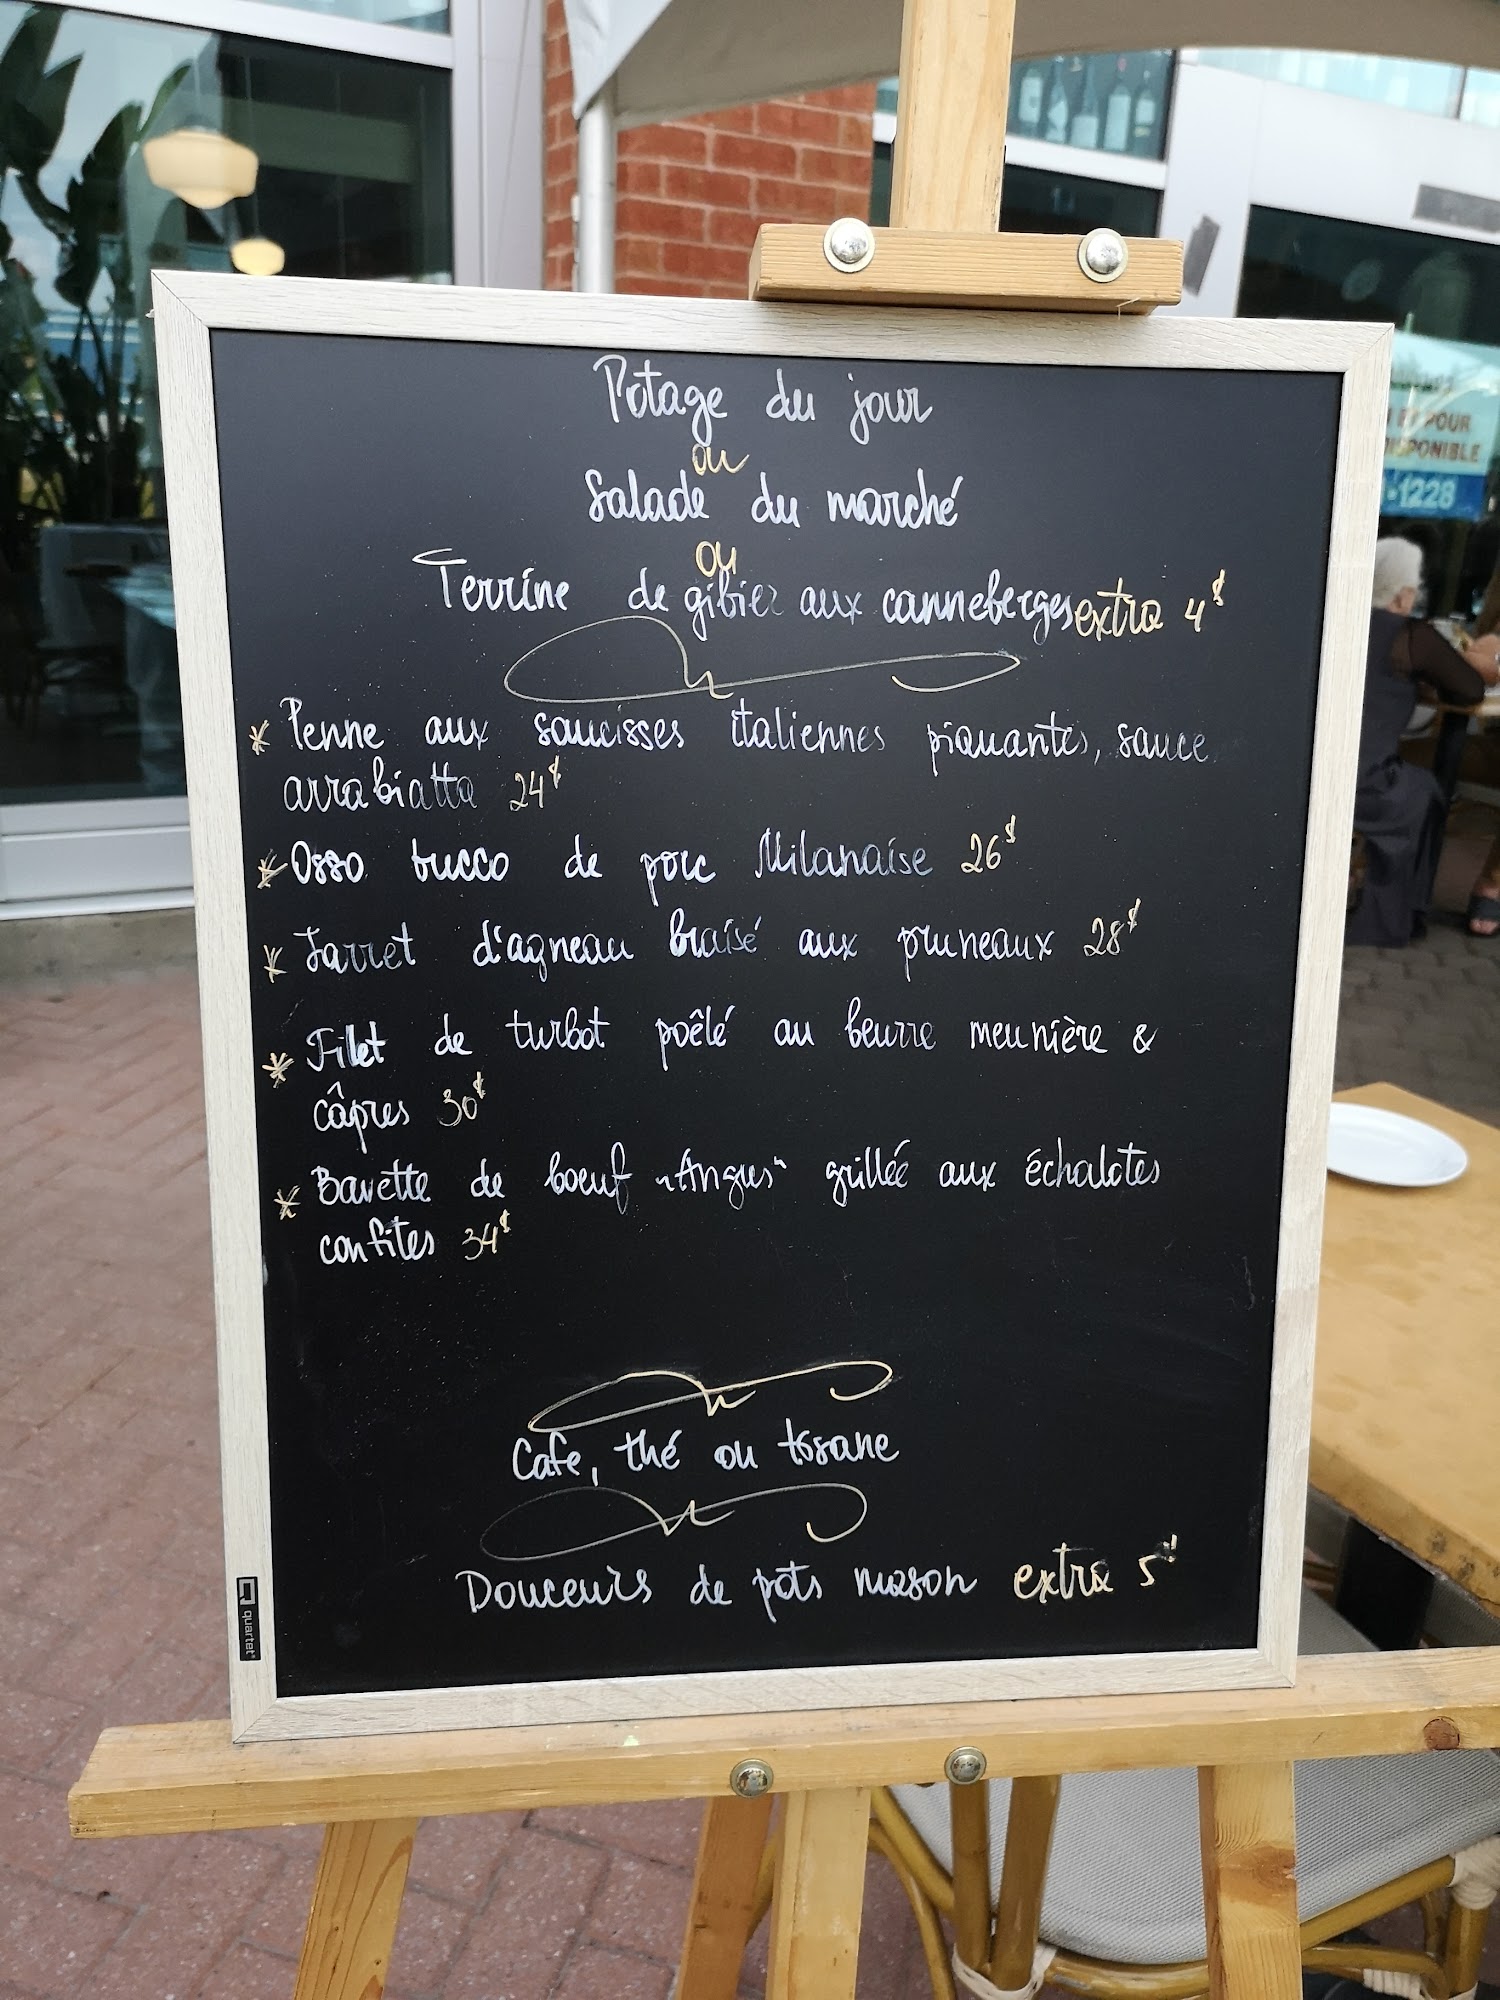 Potage du jour
ou
Salade du marché
ou
Terrine de gibier aux canneberges extra 4$
* Penne aux saucisses italiennes piquantes, sauce
arrabiatta 24$
* Osso bucco de porc Milanaise 26$
* Jarret d'agneau braisé aux pruneaux 28$
* Filet de turbot poêlé au beurre meunière &
câpres 30$
* Bavette de boeuf "Angus" grillée aux échalotes
confites 34$
Cafe, thé ou tisane
Douceurs de pots maison extra 5$
quartet
POUR
DISPONIBLE
-1228